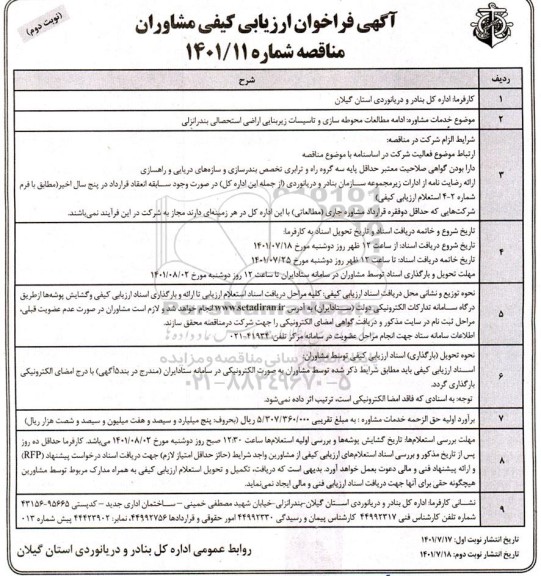 آگهی فراخوان ارزیابی کیفی مشاوران
(نوبت دوم)
مناقصه شماره ۱۴۰۱/۱۱
ردیف
شرح
۱
کارفرما: اداره کل بنادر و دریانوردی استان گیلان
۲
موضوع خدمات مشاوره: ادامه مطالعات محوطه سازی و تاسیسات زیربنایی اراضی استحصالی بندرانزلی
۳
شرایط الزام شرکت در مناقصه:
ارتباط موضوع فعالیت شرکت در اساسنامه با موضوع مناقصه
دارا بودن گواهی صلاحیت معتبر حداقل پایه سه گروه راه و ترابری تخصص بندرسازی و سازه‌های دریایی و راهسازی
ارائه رضایت نامه از ادارات زیرمجموعه سازمان بنادر و دریانوردی (از جمله این اداره کل) در صورت وجود سابقه انعقاد قرارداد در پنج سال اخیر(مطابق با فرم
شماره ۲-۴ استعلام ارزیابی کیفی)
شرکت‌هایی که حداقل دوفقره قرارداد مشاوره جاری (مطالعاتی) با این اداره کل در هر زمینه‌ای دارند مجاز به شرکت در این فرآیند نمی‌باشند.
۴
تاریخ شروع و خاتمه دریافت اسناد و تاریخ تحویل اسناد به کارفرما:
تاریخ شروع دریافت اسناد: از ساعت ۱۳ ظهر روز دوشنبه مورخ ۱۴۰۱/۰۷/۱۸
تاریخ خاتمه دریافت اسناد: تا ساعت ۱۲ ظهر روز دوشنبه مورخ ۱۴۰۱/۰۷/۲۵
مهلت تحویل و بارگذاری اسناد توسط مشاوران در سامانه ستادایران تا ساعت ۱۲ روز دوشنبه مورخ ۱۴۰۱/۰۸/۰۲
۵
نحوه توزیع و نشانی محل دریافت اسناد ارزیابی کیفی: کلیه مراحل دریافت اسناد استعلام ارزیابی تا ارائه و بارگذاری اسناد ارزیابی کیفی و گشایش پوشه‌ها ازطریق
درگاه سامانه تدارکات الکترونیکی دولت (ستادایران) به آدرس www.setadiran.ir انجام خواهد شد و لازم است مشاوران در صورت عدم عضویت قبلی،
مراحل ثبت نام در سایت مذکور و دریافت گواهی امضای الکترونیکی را جهت شرکت درمناقصه محقق سازند.
اطلاعات سامانه ستاد جهت انجام مراحل عضویت در سامانه مرکز تلفن: ۴۱۹۳۴-۰۲۱
۶
نحوه تحویل (بارگذاری) اسناد ارزیابی کیفی توسط مشاوران:
اسناد ارزیابی کیفی باید مطابق شرایط ذکر شده توسط مشاوران به صورت الکترونیکی در سامانه ستادایران (مندرج در بند۵آگهی) با درج امضای الکترونیکی
بارگذاری گردد.
توجه: به اسنادی که فاقد امضا الکترونیکی است، ترتیب اثر داده نمی‌شود.
۷
برآورد اولیه حق الزحمه خدمات مشاوره : به مبلغ تقریبی ۵/۳۰۷/۳۶۰/۰۰۰ ریال (بحروف: پنج میلیارد و سیصد و هفت میلیون و سیصد و شصت هزار ریال)
۸
مهلت بررسی استعلام‌ها: تاریخ گشایش پوشه‌ها و بررسی اولیه استعلام‌ها ساعت ۱۲:۳۰ صبح روز دوشنبه مورخ ۱۴۰۱/۰۸/۰۲ می‌باشد. کارفرما حداقل ده روز
پس از تاریخ مذکور و بررسی اسناد استعلام‌های ارزیابی کیفی از مشاورین واجد شرایط (حائز حداقل امتیاز لازم) جهت دریافت اسناد درخواست پیشنهاد (RFP)
و ارائه پیشنهاد فنی و مالی دعوت بعمل خواهد آورد. بدیهی است که دریافت، تکمیل و تحویل استعلام ارزیابی کیفی به همراه مدارک مربوط توسط مشاورین
هیچگونه حقی برای آنها جهت دریافت اسناد ارزیابی فنی و مالی ایجاد نمی‌نماید.
۹
نشانی کارفرما: اداره کل بنادر و دریانوردی استان گیلان-بندرانزلی-خیابان شهید مصطفی خمینی – ساختمان اداری جدید – کدپستی ۹۵۶۶۵-۴۳۱۵۶
شماره تلفن کارشناس فنی ۴۴۹۹۲۳۱۷ کارشناس پیمان و رسیدگی ۴۴۹۹۲۳۳۰ امور حقوقی و قراردادها ۴۴۹۹۲۷۵۶، نمابر: ۴۴۴۲۳۹۰۲ پیش شماره ۰۱۳
تاریخ انتشار نوبت اول: ۱۴۰۱/۷/۱۷
تاریخ انتشار نوبت دوم: ۱۴۰۱/۷/۱۸
روابط عمومی اداره کل بنادر و دریانوردی استان گیلان
۰۲۱-۸۸۳۴۹۶۷۰-۵